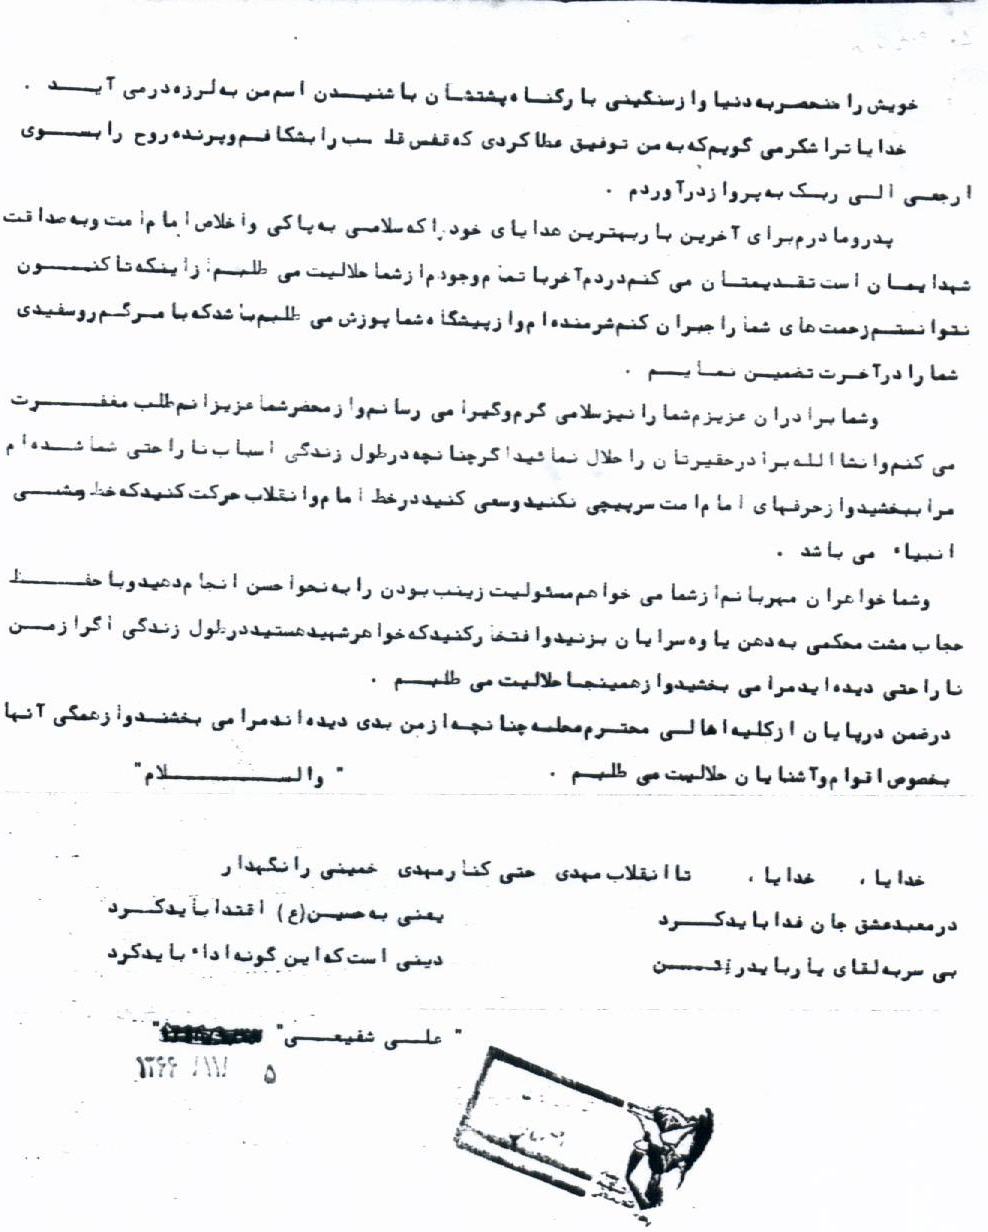 خویش را منحصر به دنیا و از سنگینی بار گناه پشتشان با شنیدن اسم من به لرزه در می آید .
خدایا ترا شکر می گویم که به من توفیق عطا کردی که قفس قلبم را بشکافم و پرنده روح را بسوی
ارجعی الی ربک به پرواز درآوردم .
پدر و مادرم برای آخرین بار بهترین هدایای خود را که سلامی به پاکی و اخلاص امام امت و به صداقت
شهدایمان است تقدیمتان می کنم در دم آخر با تمام وجودم از شما حلالیت می طلبم از اینکه تا کنون
نتوانستم زحمت های شما را جبران کنم شرمنده ام و از پیشگاه شما پوزش می طلبم باشد که با مرگم روسفیدی
شما را در آخرت تضمین نمایم .
و شما برادران عزیزم شما را نیز سلامی گرم و گیرا می رسانم و از محضر شما عزیزانم طلب مغفرت
می کنم و انشاالله برادر حقیرتان را حلال نمائید اگر چنانچه در طول زندگی اسباب ناراحتی شما شده ام
مرا ببخشید و از حرفهای امام امت سرپیچی نکنید و سعی کنید در خط امام و انقلاب حرکت کنید که خط ومشی
انبیاء می باشد .
و شما خواهران مهربانم از شما می خواهم مسئولیت زینب بودن را به نحو احسن انجام دهید و با حفظ
حجاب مشت محکمی به دهن یاوه سرایان بزنید و افتخار کنید که خواهر شهید هستید در طول زندگی اگر از من
ناراحتی دیده اید مرا می بخشید و از همینجا حلالیت می طلبم .
در ضمن در پایان از کلیه اهالی محترم محله چنانچه از من بدی دیده اند مرا می بخشند و از همگی آنها
بخصوص اقوام و آشنایان حلالیت می طلبم . " والسلام "
خدایا ، خدایا ، تا انقلاب مهدی حتی کنار مهدی خمینی را نگهدار
در معبد عشق جان فدا باید کرد یعنی به حسین (ع) اقتدا باید کرد
بی سر به لقای یار باید رفتن دینی است که این گونه اداء باید کرد
" علی شفیعی "
۵ /۱۱/ ۱۳۶۶